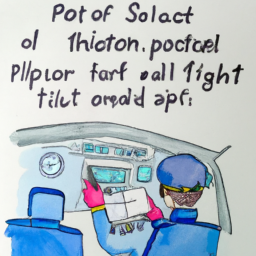 Pot of Solact
ol Thicton, poctcel
Plpior farf all flight
tilt omdd apf: